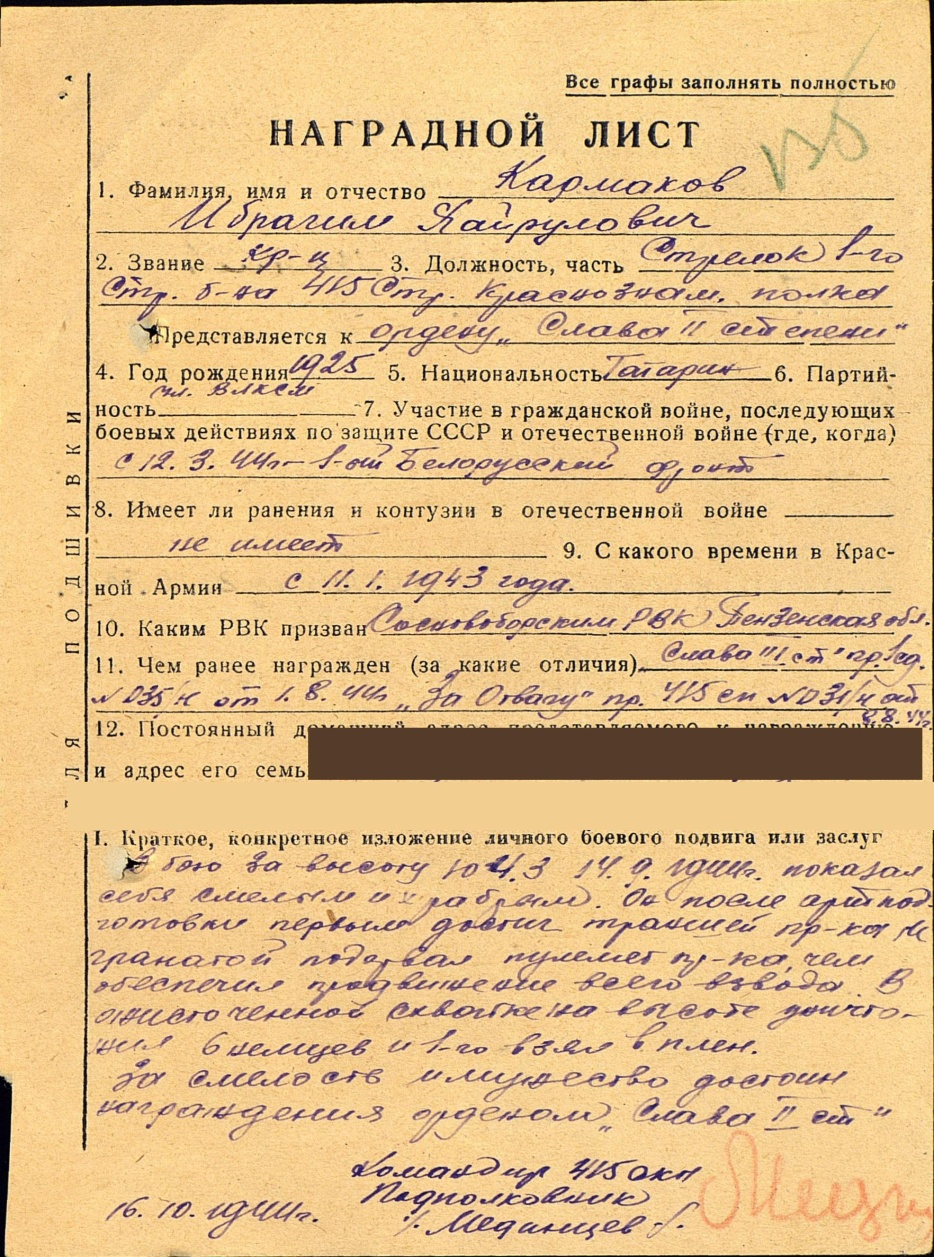 Все графы заполнять полностью
НАГРАДНОЙ ЛИСТ
1. Фамилия, имя и отчество Кармаков
Ибрагим Хайрулович
2. Звание кр-ц 3. Должность, часть Стрелок 1-го
Стр. б-на 415 Стр. Краснознам. полка
Представляется к ордену „Слава II степени"
4. Год рождения 1925 5. Национальность Татарин 6. Партий-
чл. ВЛКСМ
ность 7. Участие в гражданской войне, последующих
боевых действиях по защите СССР и отечественной войне (где, когда)
с 12.3.44г- 1-ый Белорусский фронт
8. Имеет ли ранения и контузии в отечественной войне
не имеет 9. С какого времени в Крас-
ной Армии с 11.1.1943 года.
10. Каким РВК призван Сосновоборским РВК Пензенская обл.
11. Чем ранее награжден (за какие отличия) Слава III ст" пр.
№ 035/н от 1.8.44г „За Отвагу" пр. 415 сп № 031/н от
8.8.44г.
12. Постоянный
и адрес его семь
ЛЯ ПОДШИВКИ
I. Краткое, конкретное изложение личного боевого подвига или заслуг
В бою за высоту 104.3 14.9.1944г. показал
себя смелым и храбрым. Он после артпод-
готовки первым достиг траншей пр-ка и
гранатой подорвал пулемет пр-ка, чем
обеспечил продвижение всего взвода. В
ожисточенной схватке на высоте уничто-
жил 6 немцев и 1-го взял в плен.
За смелость и мужество достоин
награждения орденом „Слава II ст"
Командир 415 скп
Подполковник
16.10.1944г. /. Мединцев /.